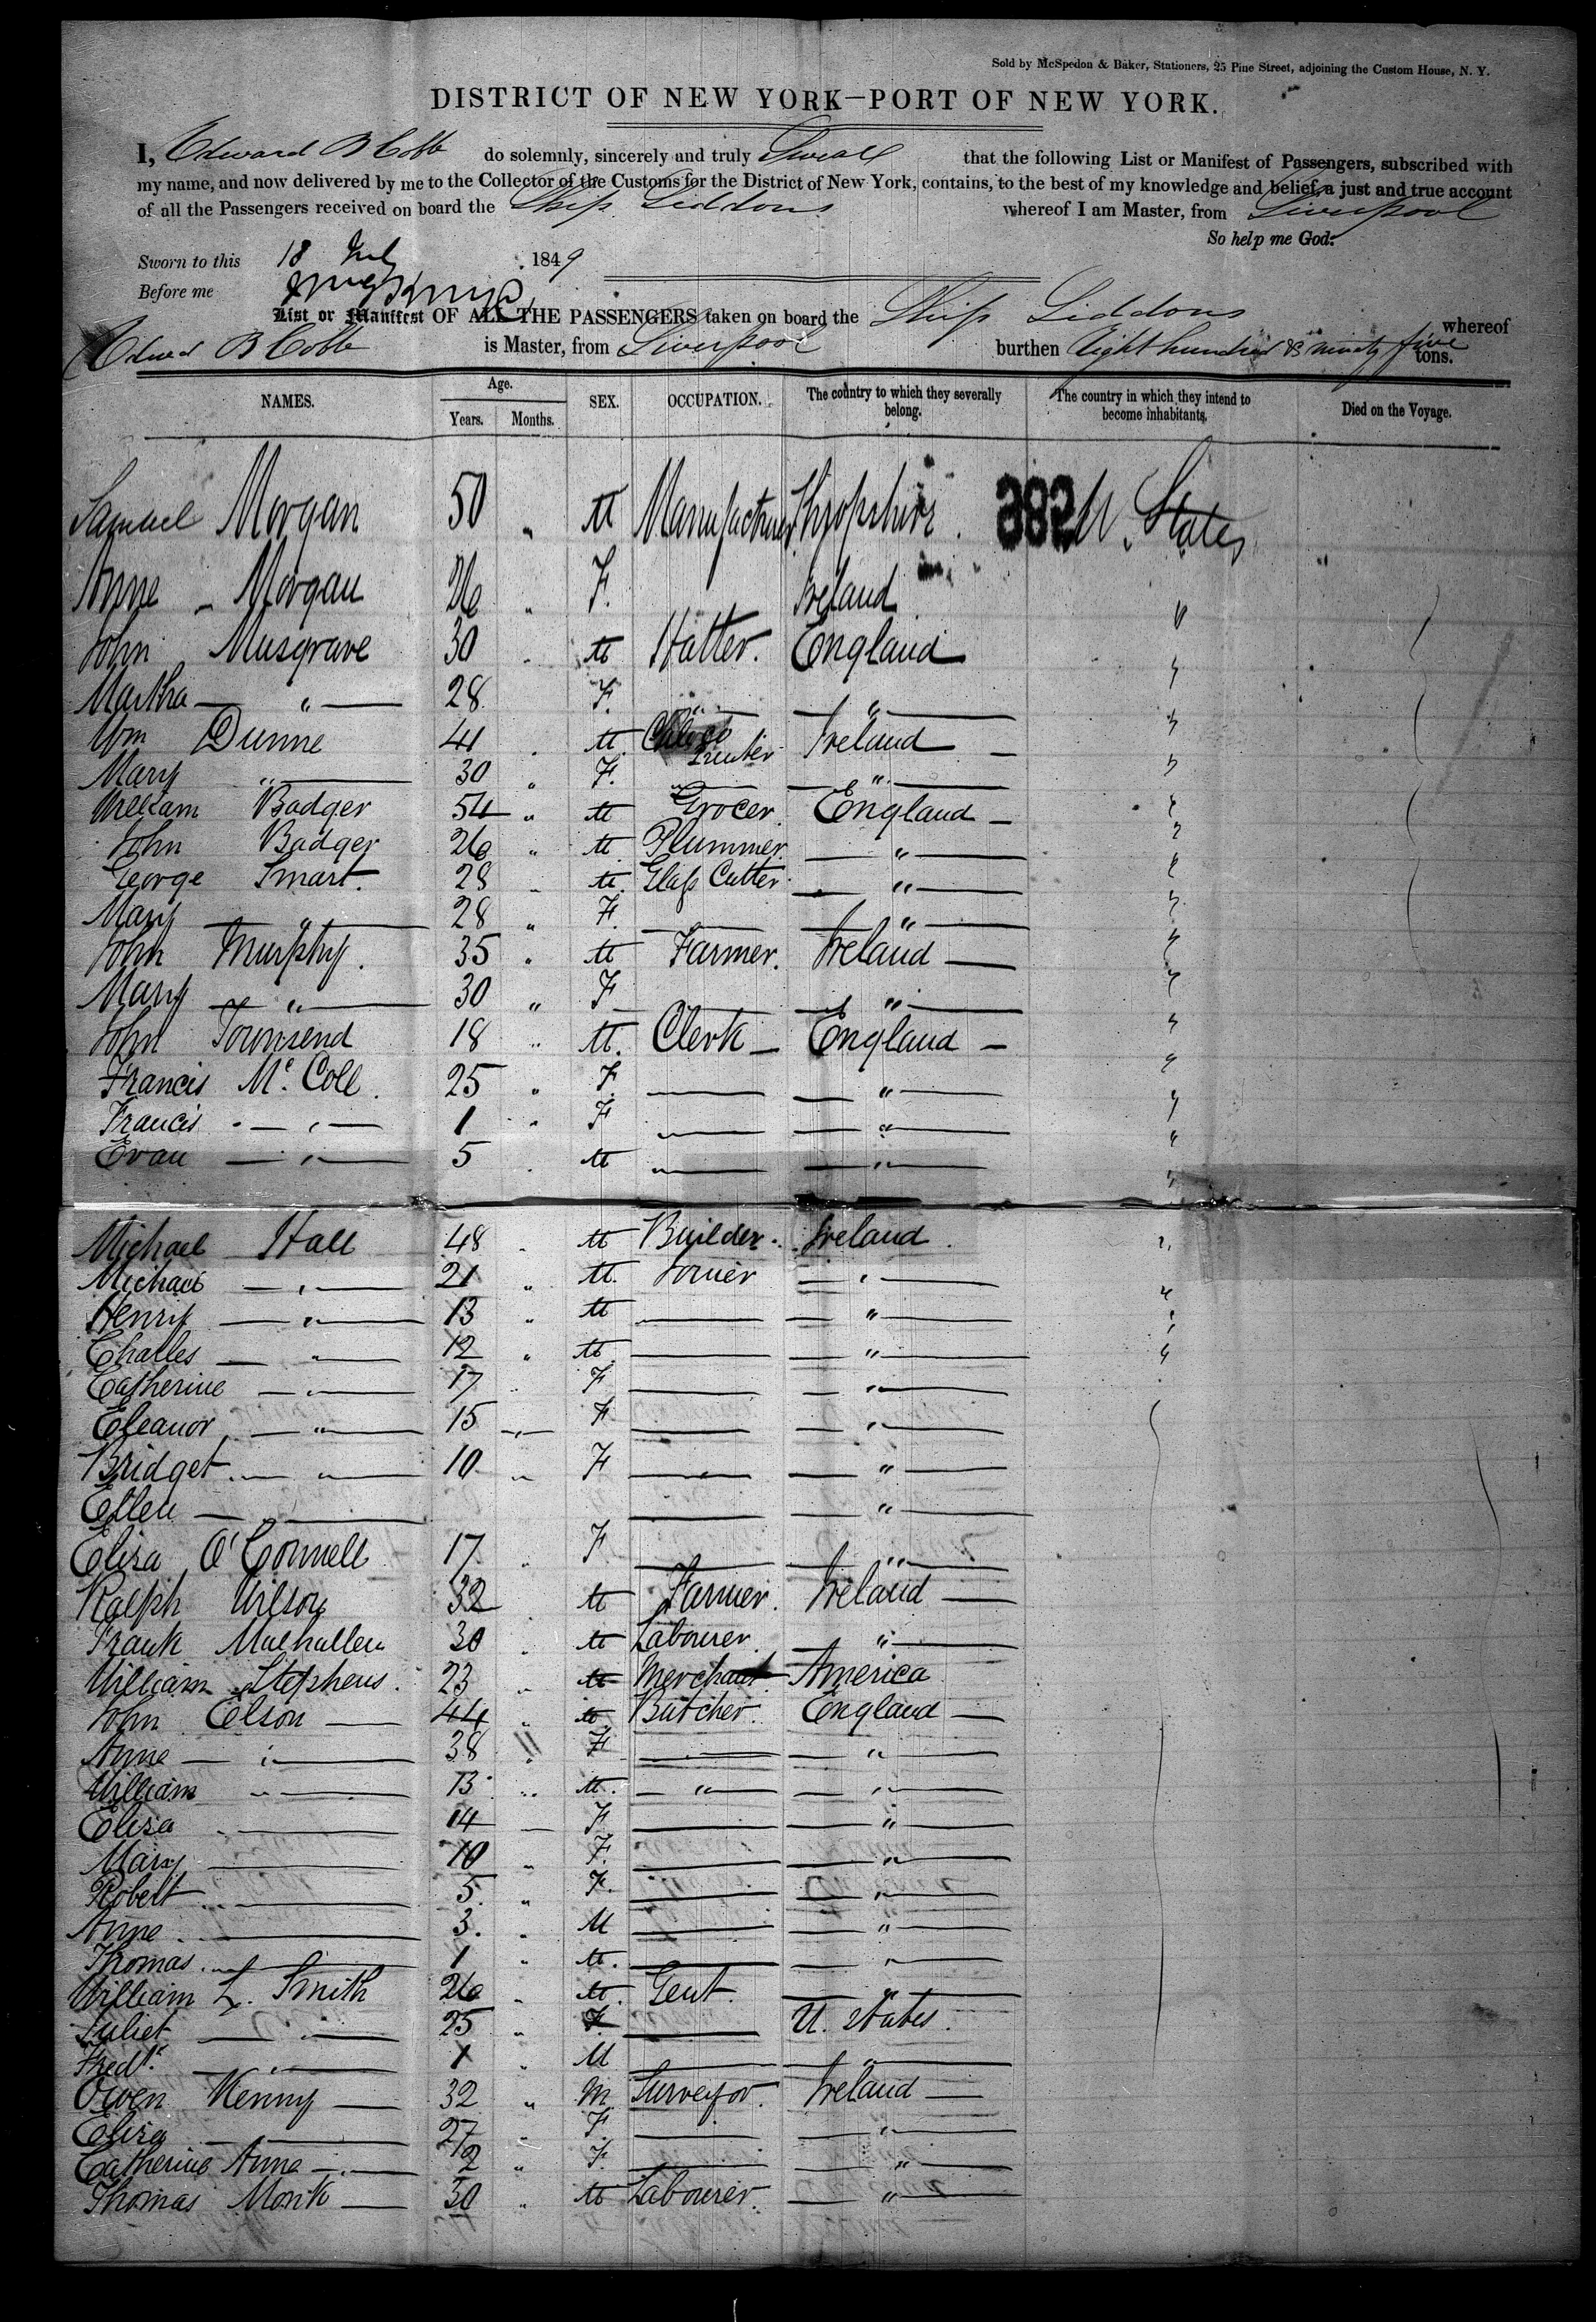 Sold by McSpedon & Baker, Stationers, 25 Pine Street, adjoining the Custom House, N. Y.
DISTRICT OF NEW YORK—PORT OF NEW YORK.
I, Edward B Cobb do solemnly, sincerely and truly Swear that the following List or Manifest of Passengers, subscribed with
my name, and now delivered by me to the Collector of the Customs for the District of New York, contains, to the best of my knowledge and belief, a just and true account
of all the Passengers received on board the Ship Siddons whereof I am Master, from Liverpool
So help me God.
Sworn to this 18 July 1849
Before me
List or Manifest OF ALL THE PASSENGERS taken on board the Ship Siddons whereof
Edward B Cobb is Master, from Liverpool burthen Eight hundred & ninety five tons.
NAMES. Age. Years. Months. SEX. OCCUPATION. The country to which they severally belong. The country in which they intend to become inhabitants. Died on the Voyage.
Samuel Morgan 50 " M Manufacturer Shropshire 382 U. States
Anne - Morgan 26 " F. Ireland "
John Musgrave 30 " M Hatter. England "
Martha " 28 F. " " "
Wm Dunne 41 . M. Ireland "
Mary " 30 " F. " " "
William Badger 54 " M Grocer. England "
John Badger 26 " M Plummer. " "
George Smart. 28 " M. Glass Cutter " "
Mary " 28 " F. " "
John Murphy. 35 " M Farmer. Ireland "
Mary " 30 " F " "
John Townsend 18 " M. Clerk England "
Francis Mc Coll. 25 " F. " "
Francis " 1 " F " "
Evan " 5 . M " "
Michael Hall 48 . M Builder. Ireland. "
Michael " 21 " M. Joiner " "
Henry " 13 " M " "
Charles " 12 " M " "
Catherine " 17 " F "
Eleanor " 15 " F "
Bridget " 10 " F "
Ellen " "
Eliza O'Connell 17 . F "
Ralph Wilson 32 . M Farmer. Ireland
Frank Mulhallen 30 . M Labourer. "
William Stephens. 23 " M Merchant America
John Elson 44 " M Butcher. England
Anne " 38 " F "
William " 13 " M. " "
Eliza 14 F "
Mary 10 " F. "
Robert 5. " F. "
Anne 3. " M "
Thomas 1 " M. "
William L. Smith 26 " M. Gent. "
Juliet " 25 " F. U. States.
Fredk. " 1 " M "
Owen Kenny 32 " M Surveyor. Ireland
Eliza 27 " F. "
Catherine Anne 2 " F. "
Thomas Monk 30 " M Labourer. "